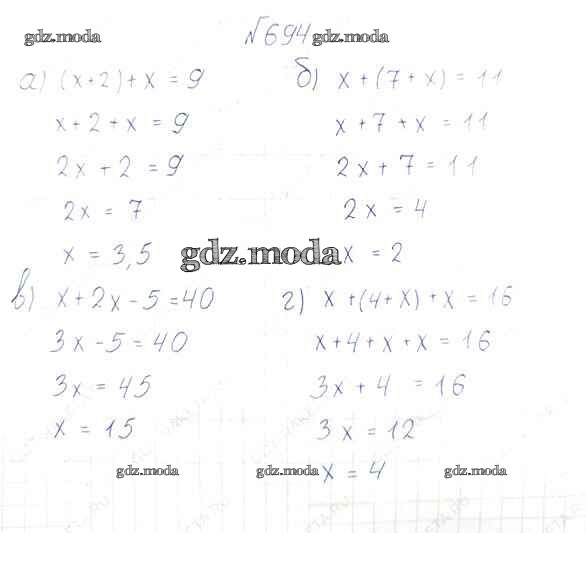 gdz.moda №694 gdz.moda
а) (x+2)+x = 9
x+2+x = 9
2x+2 = 9
2x = 7
x = 3,5
б) x+(7+x) = 11
x+7+x = 11
2x+7 = 11
2x = 4
gdz.moda x = 2
в) x+2x-5=40
3x-5=40
3x = 45
x = 15
г) x+(4+x)+x = 16
x+4+x+x = 16
3x+4 = 16
3x = 12
x = 4
gdz.moda gdz.moda gdz.moda